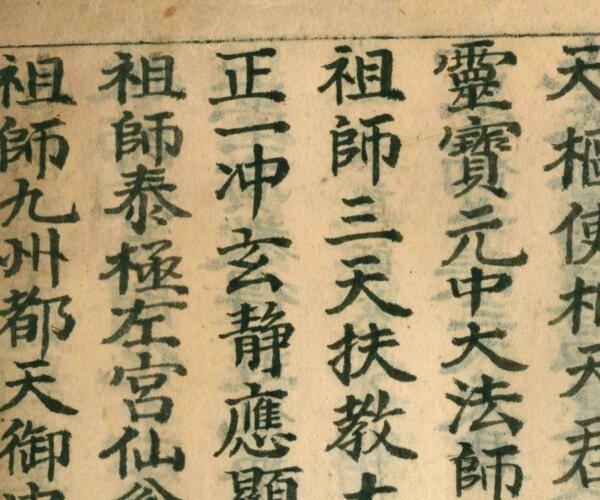 天樞使相天君
靈寶元中大法師
祖師三天扶教
正一冲玄静應顯
祖師泰極左宮仙
祖師九州都天御